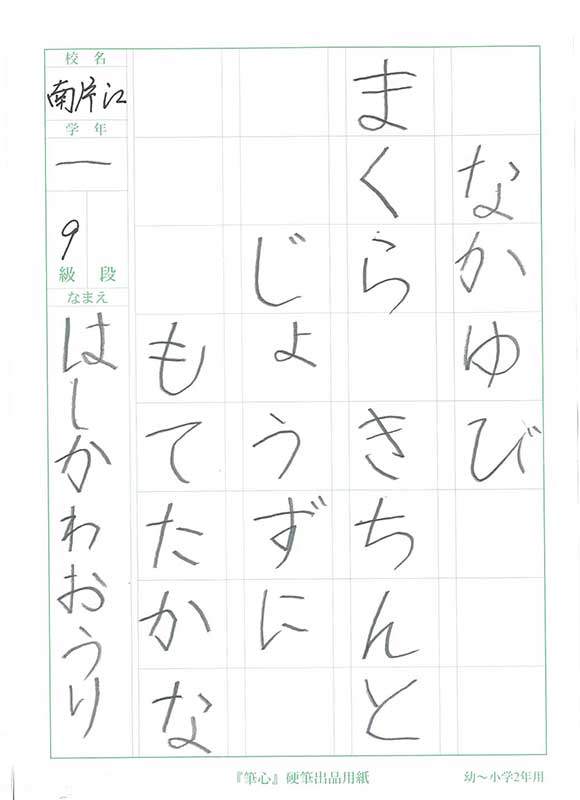 なかゆび
まくら きちんと
じょうずに
もてたかな
校名
南片江
学年
一
9
級 段
なまえ
はしかわおうり
『筆心』硬筆出品用紙
幼～小学2年用